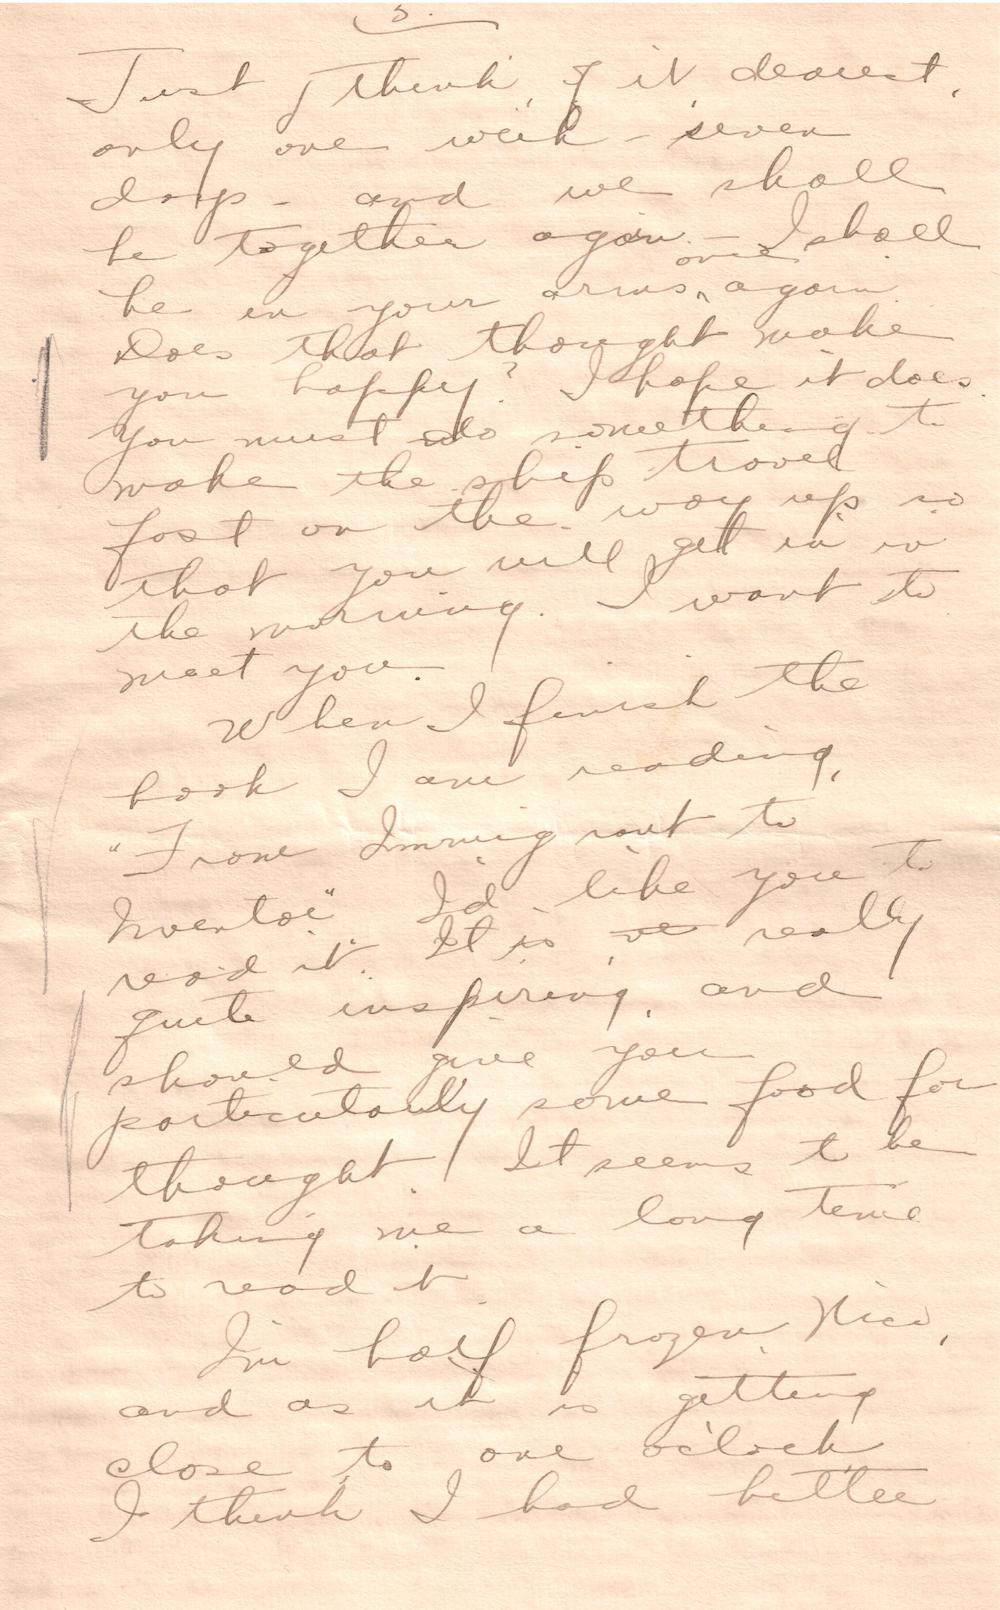 3.
Just think of it dearest,
only one week - seven
days - and we shall
be together again. - I shall
one
be in your arms, again
Does that thought make
you happy? I hope it does.
You must do something to
make the ship travel
fast on the way up so
that you will get in in
the morning. I want to
meet you.
When I finish the
book I am reading,
"From Immigrant to
Inventor" I'd like you to
read it. It is ve really
quite inspiring, and
should give you
particularly some food for
thought. It seems to be
taking me a long time
to read it.
I'm half frozen Nico,
and as it is getting
close to one o'clock
I think I had better